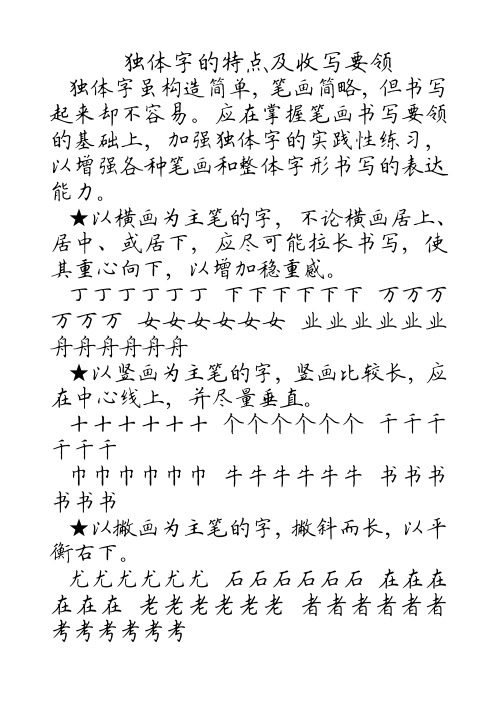 独体字的特点及收写要领
独体字虽构造简单，笔画简略，但书写
起来却不容易。应在掌握笔画书写要领
的基础上，加强独体字的实践性练习，
以增强各种笔画和整体字形书写的表达
能力。
★以横画为主笔的字，不论横画居上、
居中、或居下，应尽可能拉长书写，使
其重心向下，以增加稳重感。
丁丁丁丁丁丁 下下下下下下 万万万
万万万 女女女女女女 业业业业业业
舟舟舟舟舟舟
★以竖画为主笔的字，竖画比较长，应
在中心线上，并尽量垂直。
十十十十十十 个个个个个个 千千千
千千千
巾巾巾巾巾巾 牛牛牛牛牛牛 书书书
书书书
★以撇画为主笔的字，撇斜而长，以平
衡右下。
尤尤尤尤尤尤 石石石石石石 在在在
在在在 老老老老老老 者者者者者者
考考考考考考